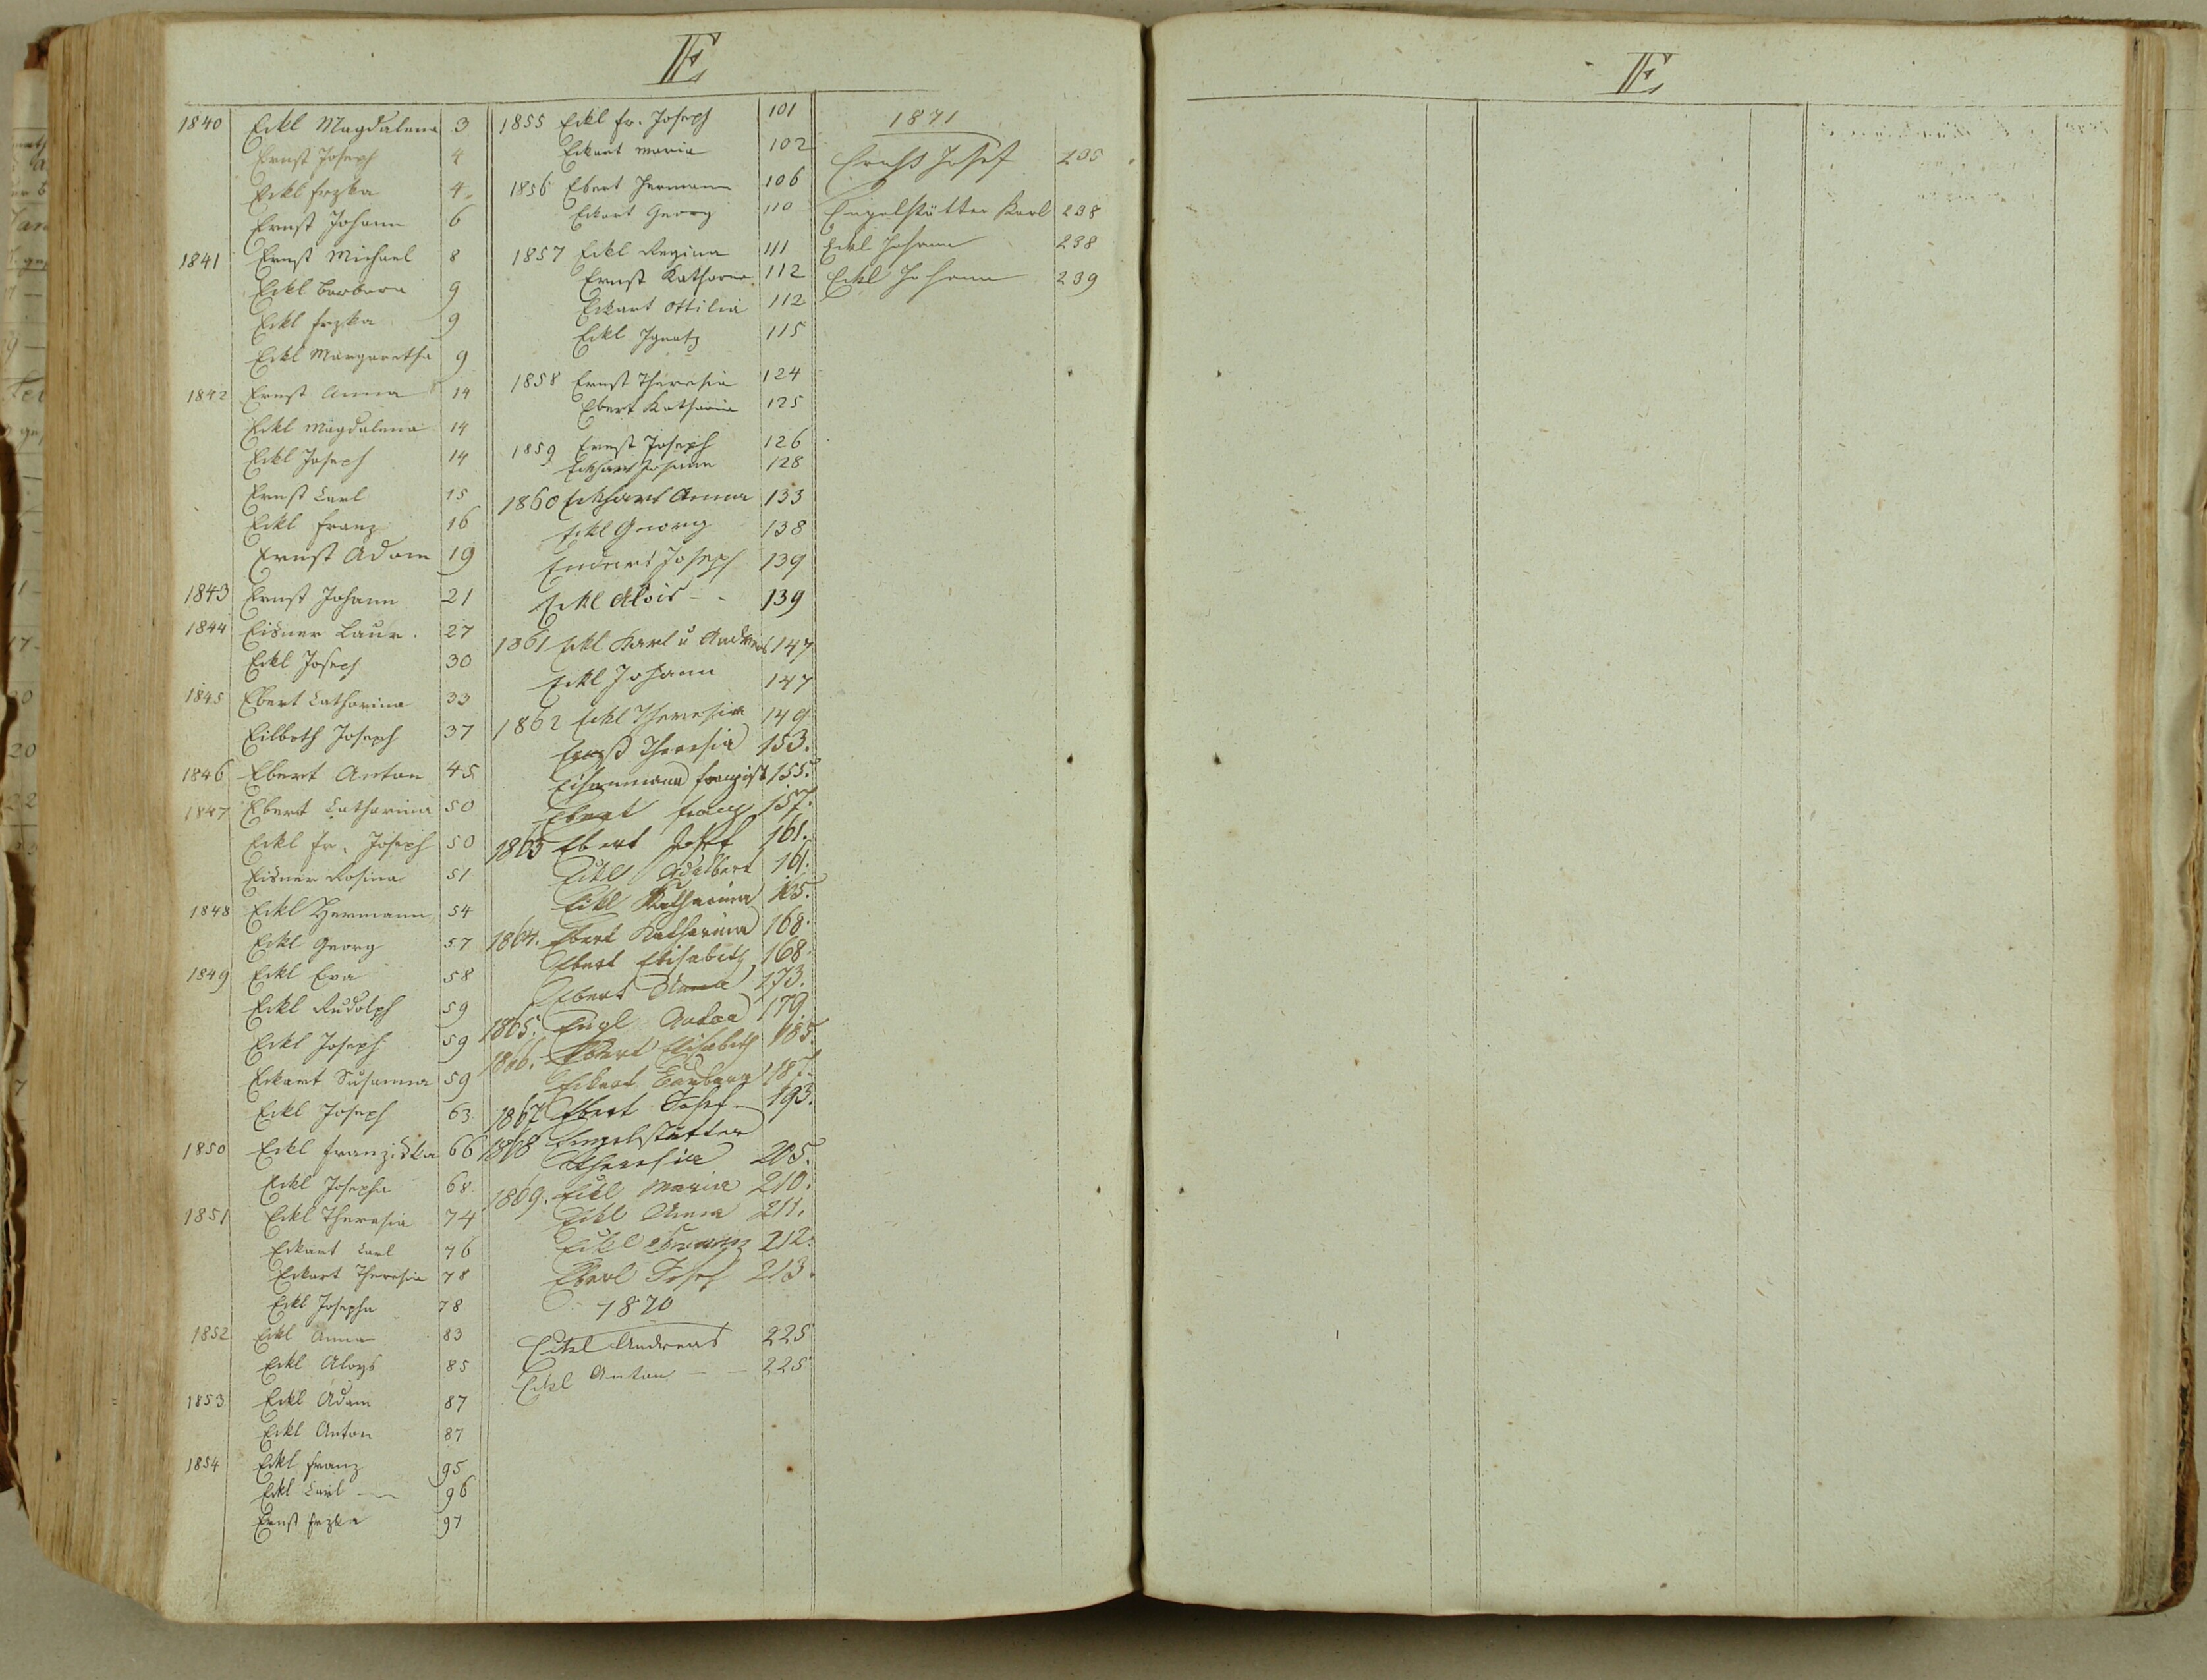 E
1840 Eckl Magdalena 3
Ernst Joseph 4
Eckl Frzka 4
Ernst Johann 6
1841 Ernst Michael 8
Eckl Barbara 9
Eckl Frzka 9
Eckl Margaretha 9
1842 Ernst Anna 14
Eckl Magdalena 14
Eckl Joseph 14
Ernst Carl 15
Eckl Franz 16
Ernst Adam 19
1843 Ernst Johann 21
1844 Eisner Laur. 27
Eckl Joseph 30
1845 Ebert Catharina 33
Eilboth Joseph 37
1846 Ebert Anton 45
1847 Ebert Catharina 50
Eckl Fr. Joseph 50
Eisner Rosina 51
1848 Eckl Hermann 54
Eckl Georg 57
1849 Eckl Eva 58
Eckl Rudolph 59
Eckl Joseph 59
Eckart Susanna 59
Eckl Joseph 63
1850 Eckl Franziska 66
Eckl Josepha 68
1851 Eckl Theresia 74
Eckart Carl 76
Eckart Theresia 78
Eckl Josepha 78
1852 Eckl Anna 83
Eckl Aloys 85
1853 Eckl Adam 87
Eckl Anton 87
1854 Eckl Franz 95
Eckl Carl 96
Ernst Frzka 97
1855 Eckl Fr. Joseph 101
Eckart Maria 102
1856 Ebert Hermann 106
Eckart Georg 110
1857 Eckl Regina 111
Ernst Katharina 112
Eckart Ottilia 112
Eckl Ignatz 115
1858 Ernst Theresia 124
Ebert Katharina 125
1859 Ernst Joseph 126
Eckhart Johann 128
1860 Eckhart Anna 133
Eckl Georg 138
Enders Joseph 139
Eckl Alois - - 139
1861 Eckl Karl u Andreas 147
Eckl Johann 147
1862 Eckl Theresia 149
Ernst Theresia 153.
Eisenmann Franziska 155.
Ebert Franz 157.
1863 Ebert Josef 161.
Eckl Adalbert 161.
Eckl Katharina 165.
1864. Ebert Katharina 168.
Ebert Elisabeth 168.
Ebert Anna 173.
1865. Engl Anton 179.
1866. Ebert Elisabeth 185.
Eckert Barbara 187.
1867 Ebert Josef 193.
1868 Engelstätter
Theresia 205.
1869. Eckl Maria 210.
Eckl Anna 211.
Eckl Franz 212.
Eberl Josef 213.
1870
Eckl Andreas 225
Eckl Anton - - 225
1871
Ernst Josef 235
Engelstätter Karl 238
Eckl Johann 238
Eckl Johann 239
E